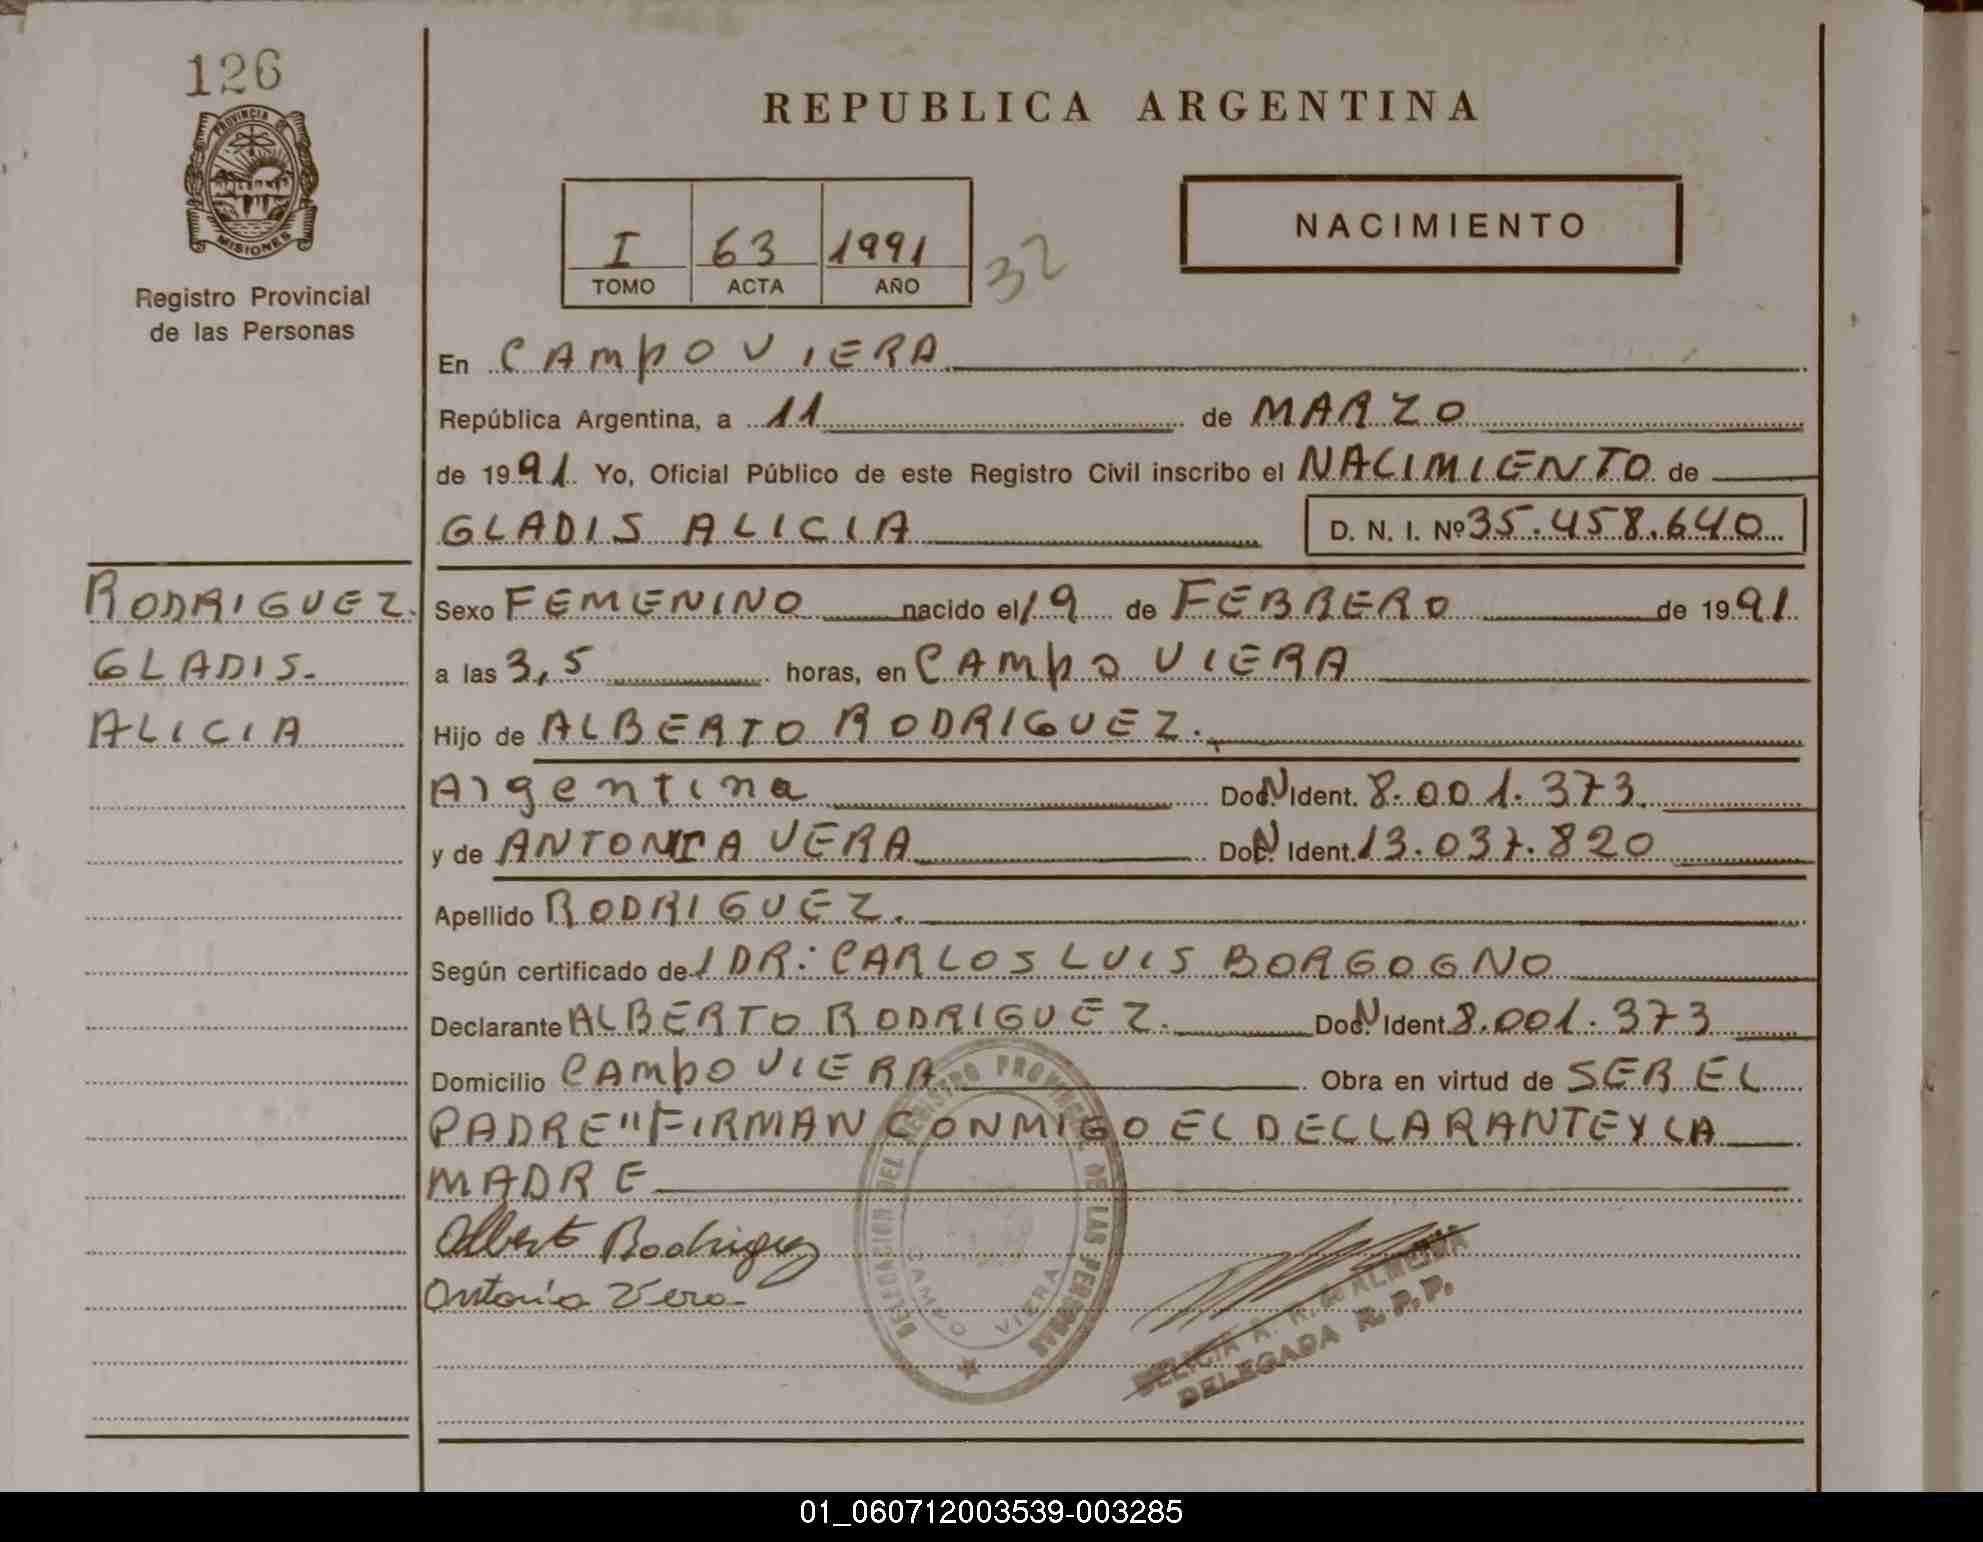 126
PROVINCIA DE
MISIONES
Registro Provincial
de las Personas
RODRIGUEZ.
GLADIS.
ALICIA
REPUBLICA ARGENTINA
I 63 1991
TOMO ACTA AÑO
32
NACIMIENTO
En CAMPO VIERA
República Argentina, a 11 de MARZO
de 1991. Yo, Oficial Público de este Registro Civil inscribo el NACIMIENTO de
GLADIS ALICIA D. N. I. Nº 35.458.640
Sexo FEMENINO nacido el 19 de FEBRERO de 1991
a las 3,5 horas, en CAMPO VIERA
Hijo de ALBERTO RODRIGUEZ.
Argentina Doc. N Ident. 8.001.373
y de ANTONIA VERA Doc. N Ident. 13.037.820
Apellido RODRIGUEZ.
Según certificado del DR: CARLOS LUIS BORGOGNO
Declarante ALBERTO RODRIGUEZ. Doc. N Ident. 8.001.373
Domicilio CAMPO VIERA Obra en virtud de SER EL
PADRE "FIRMAN CONMIGO EL DECLARANTE Y LA
MADRE
Alberto Rodriguez
Antonia Vera
DELEGACION DEL REGISTRO PROVINCIAL DE LAS PERSONAS
CAMPO VIERA
DELICIA A. R. de ALMEIDA
DELEGADA R. P. P.
01_060712003539-003285